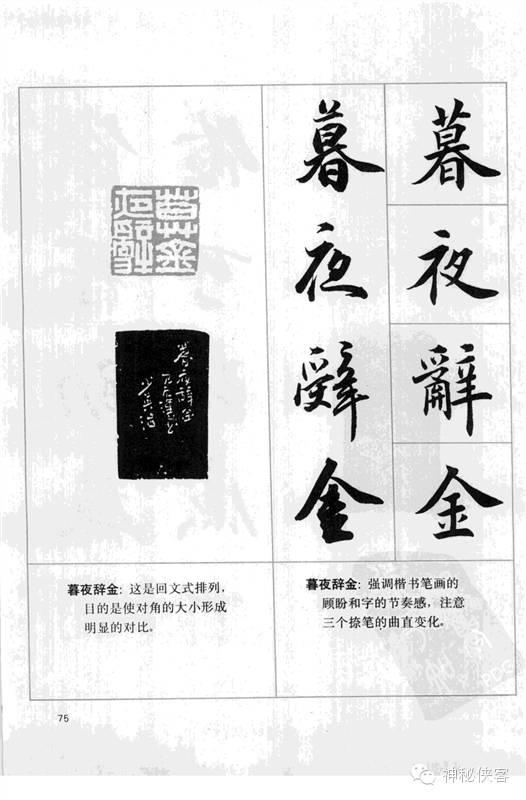 暮夜辭金
暮夜辭金
暮夜辞金：强调楷书笔画的
顾盼和字的节奏感，注意
三个捺笔的曲直变化。
暮夜辞金：这是回文式排列，
目的是使对角的大小形成
明显的对比。
75
神秘侠客